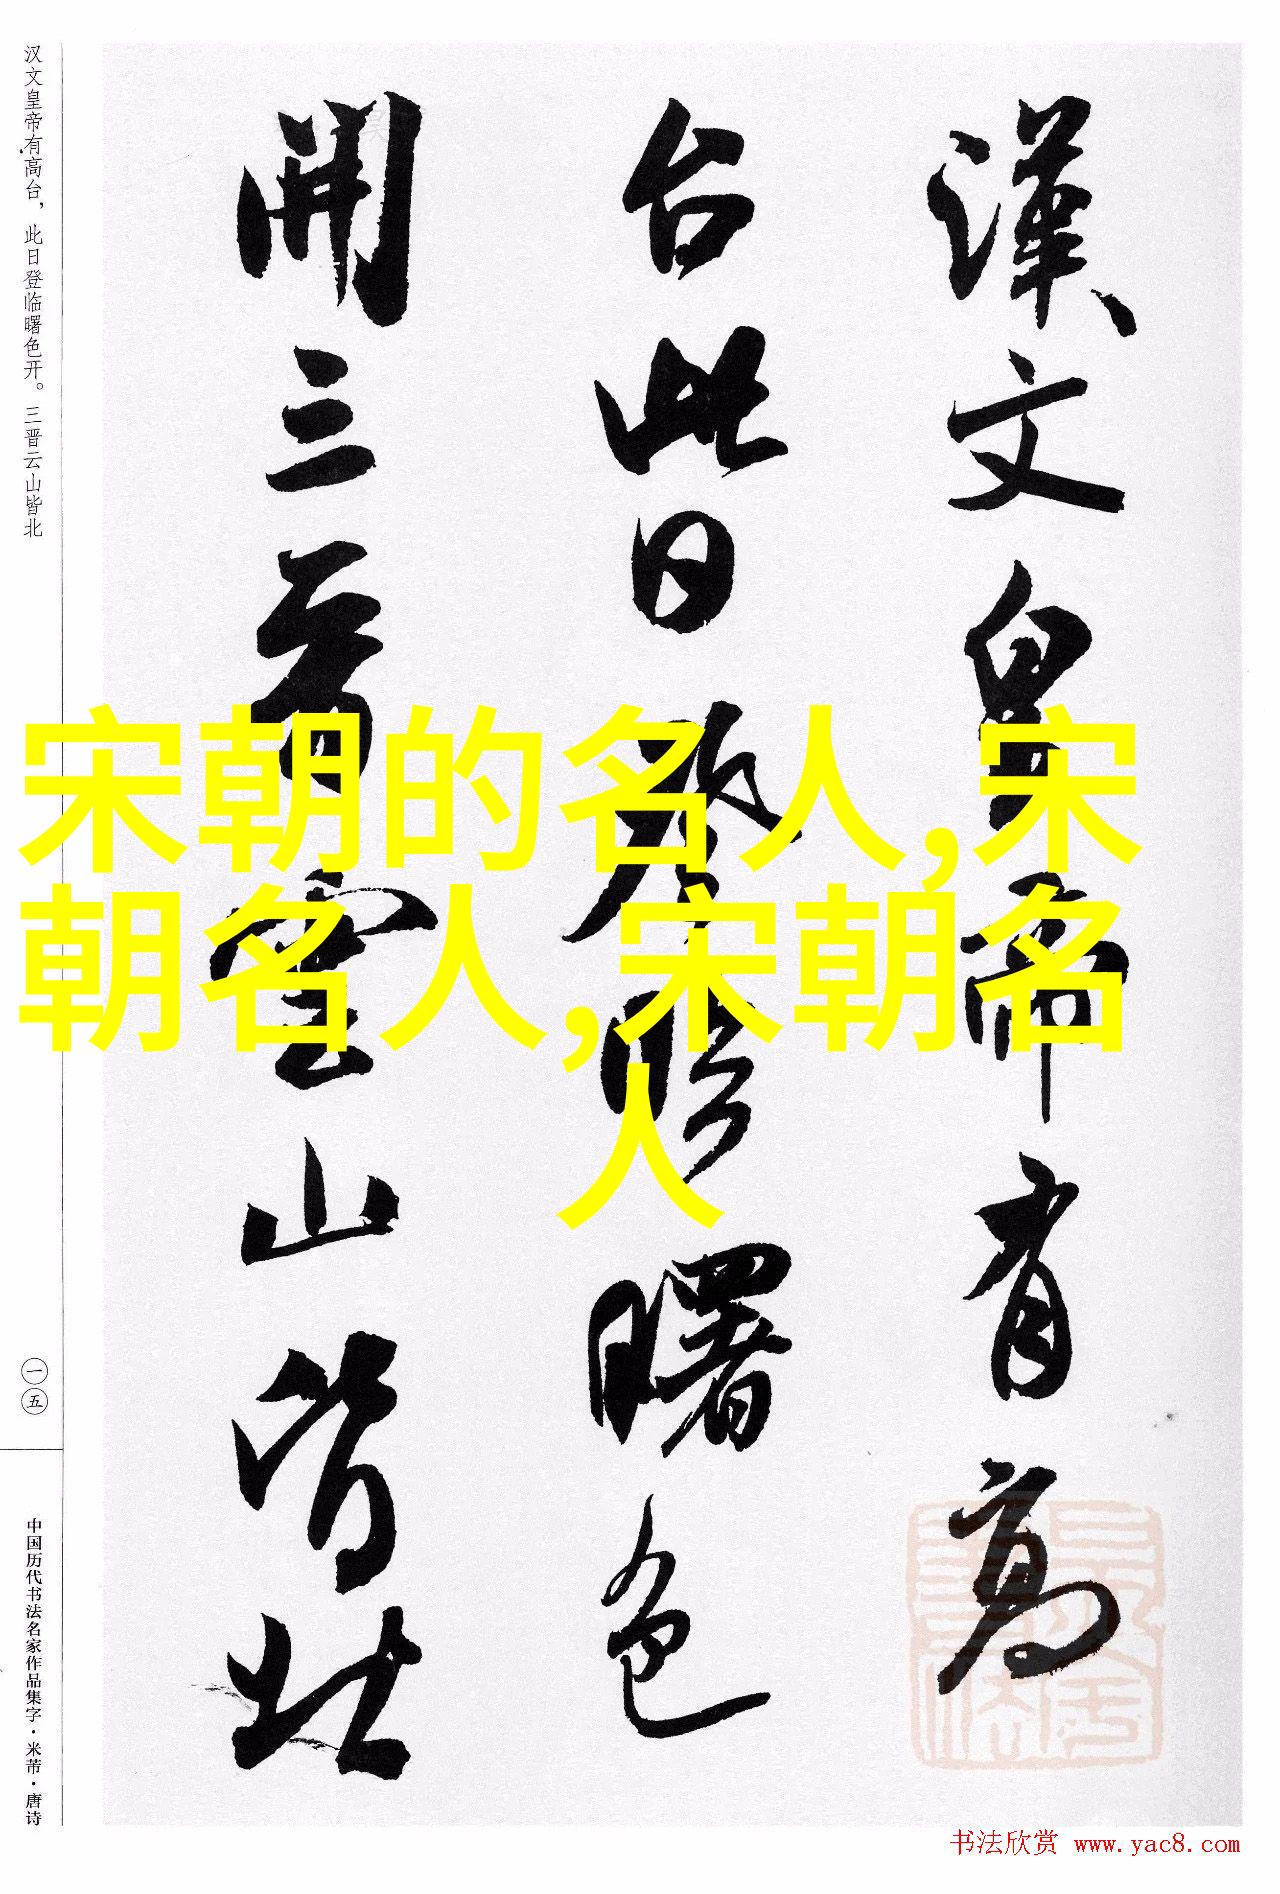 漢文皇帝有高
台此日登臨曙色
開三晉雲山皆北
汉文皇帝有高台，此日登临曙色开。三晋云山皆北
一五
中国历代书法名家作品集字·米芾·唐诗
宋朝的名人,宋
朝名人,宋朝名
人
书法欣赏 www.yac8.com